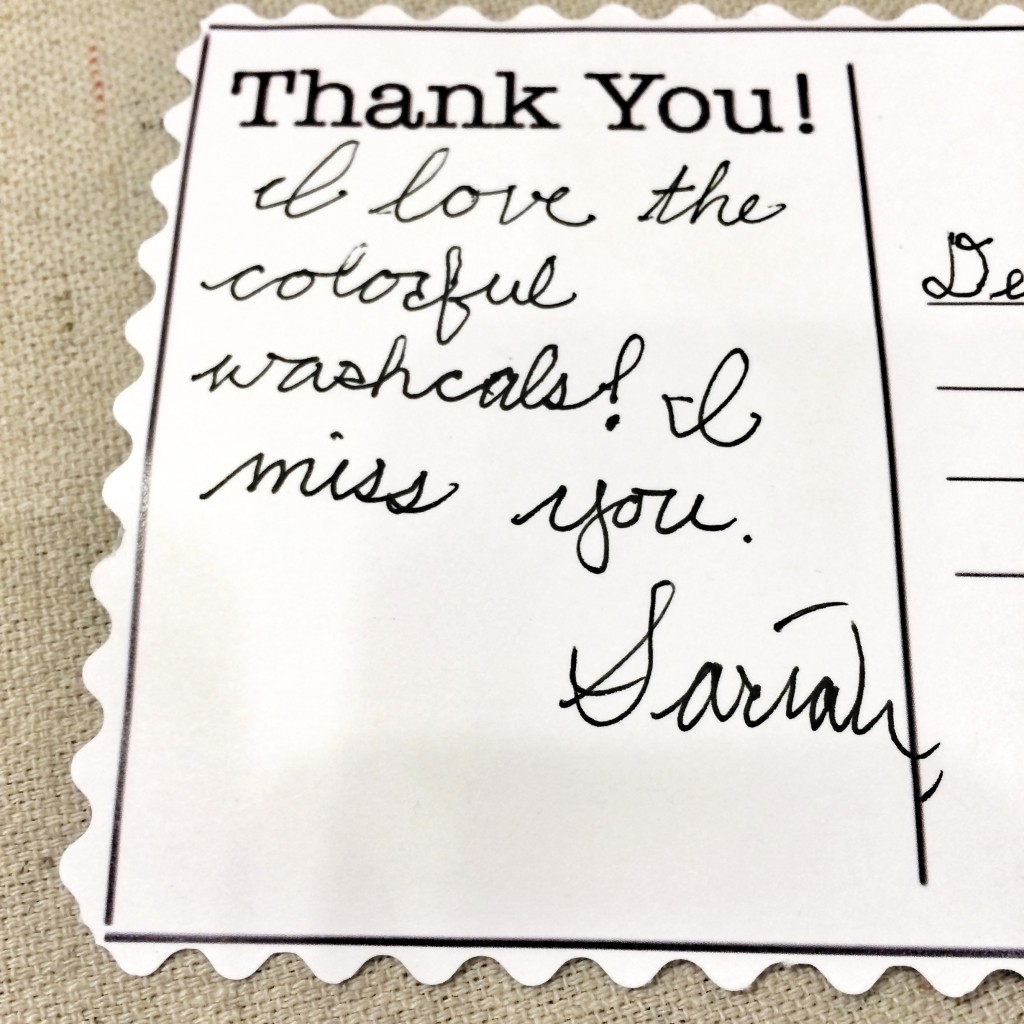 Thank You!
I love the
colorful
washcals! I
miss you.
Sariah
De